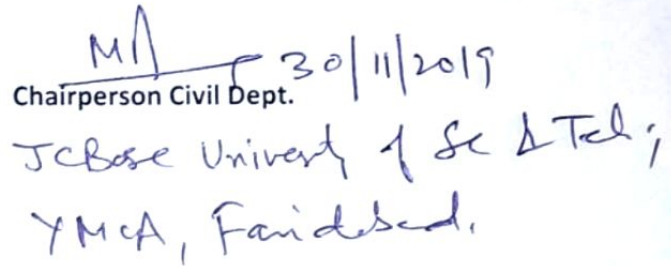 30/11/2019
Chairperson Civil Dept.
JCBose University of Sc & Tech;
YMCA, Faridabad.